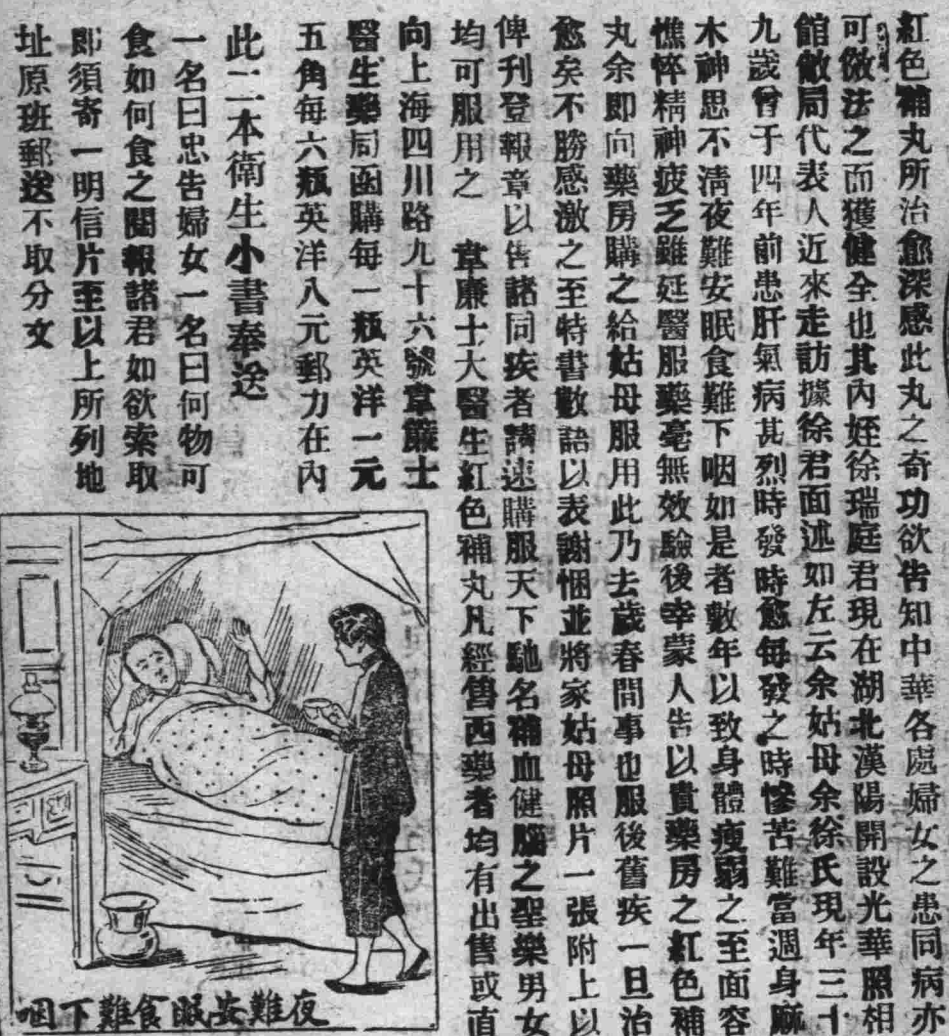 紅色補丸所治愈深感此丸之奇功欲告知中華各處婦女之患同病亦
可倣法之而獲健全也其內姪徐瑞庭君現在湖北漢陽開設光華照相
館敝局代表人近來走訪據徐君面述如左云余姑母余徐氏現年三十
九歲曾于四年前患肝氣病甚烈時發時愈每發之時慘苦難當週身麻
木神思不淸夜難安眠食難下咽如是者數年以致身體瘦弱之至面容
憔悴精神疲乏雖延醫服藥毫無效驗後幸蒙人告以貴藥房之紅色補
丸余即向藥房購之給姑母服用此乃去歲春間事也服後舊疾一旦治
愈矣不勝感激之至特書數語以表謝悃並將家姑母照片一張附上以
俾刊登報章以告諸同疾者請速購服天下馳名補血健腦之聖藥男女
均可服用之 韋廉士大醫生紅色補丸凡經售西藥者均有出售或直
向上海四川路九十六號韋廉士
醫生藥局函購每一瓶英洋一元
五角每六瓶英洋八元郵力在內
此二本衛生小書奉送
一名曰忠告婦女一名曰何物可
食如何食之閱報諸君如欲索取
即須寄一明信片至以上所列地
址原班郵送不取分文
夜難安眠食難下咽